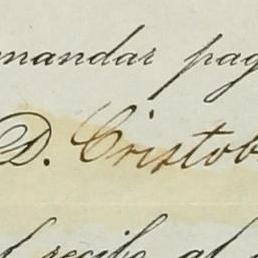 mandar pag
D. Cristob
l recibo al